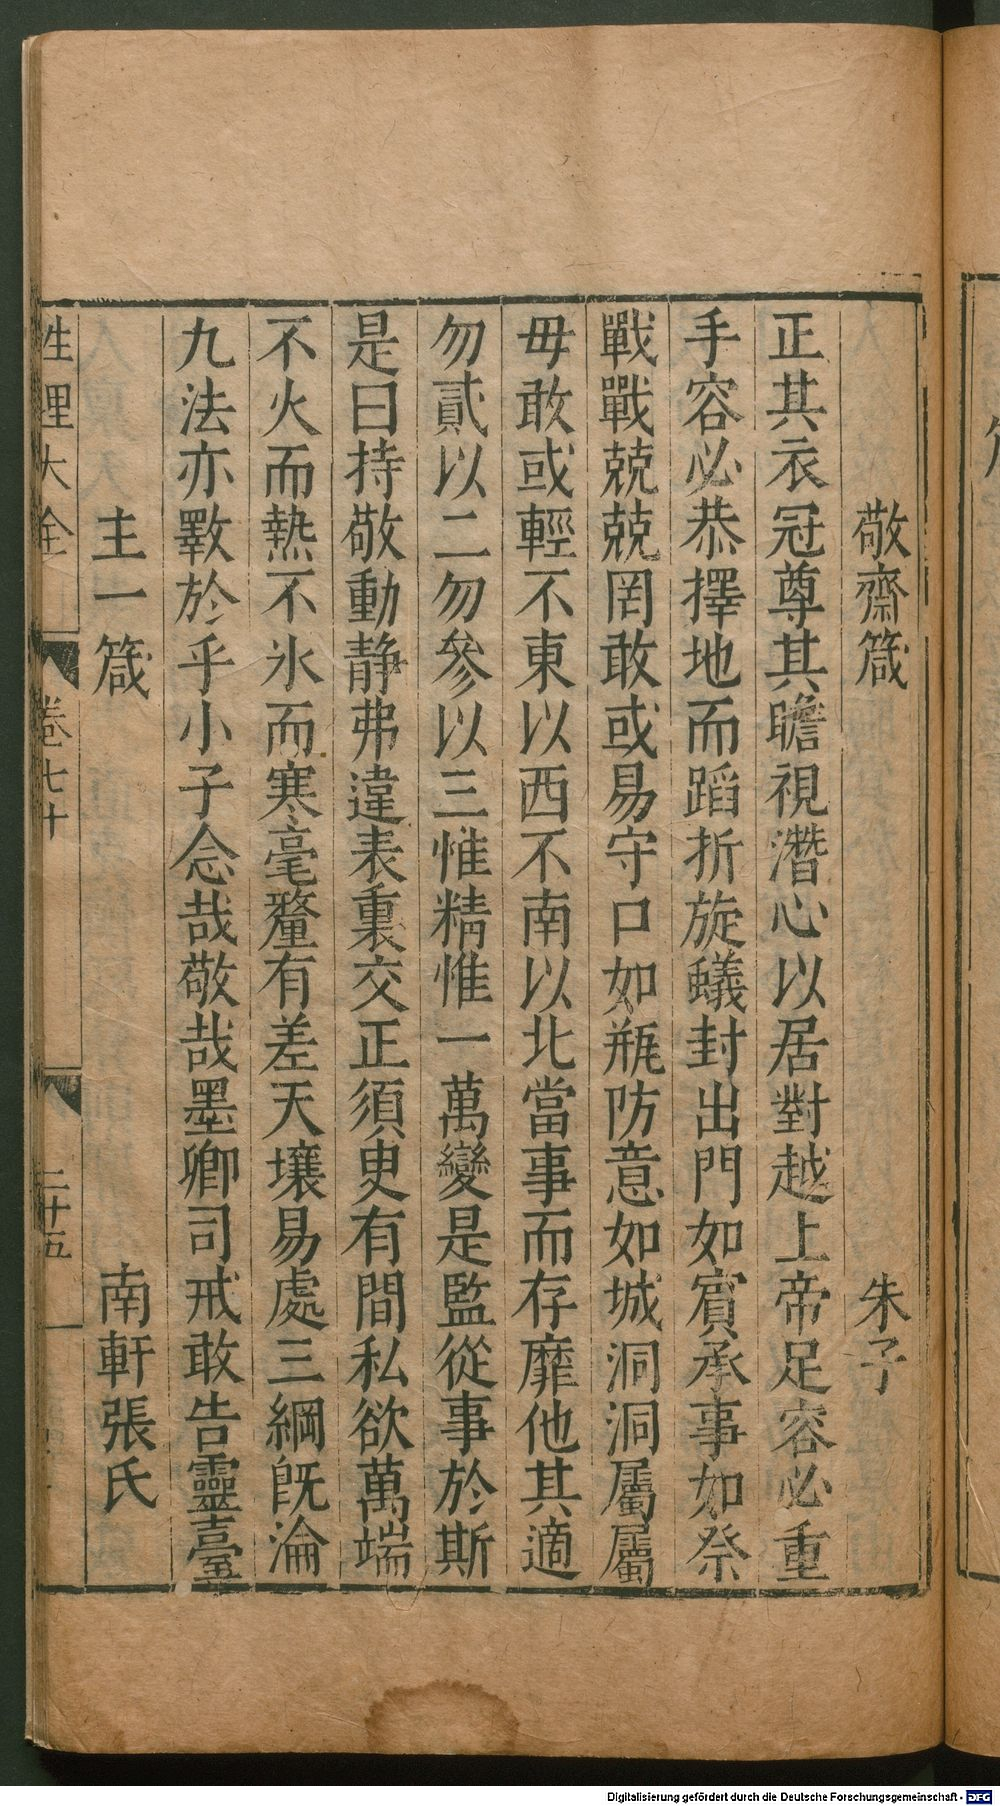 敬齋箴 朱子
正其衣冠尊其瞻視潛心以居對越上帝足容必重
手容必恭擇地而蹈折旋蟻封出門如賓承事如祭
戰戰兢兢罔敢或易守口如瓶防意如城洞洞屬屬
毋敢或輕不東以西不南以北當事而存靡他其適
勿貳以二勿參以三惟精惟一萬變是監從事於斯
是曰持敬動静弗違表裏交正須臾有間私欲萬端
不火而熱不氷而寒毫釐有差天壤易處三綱旣淪
九法亦斁於乎小子念哉敬哉墨卿司戒敢告靈臺
主一箴 南軒張氏
性理大全 卷七十 二十五
Digitalisierung gefördert durch die Deutsche Forschungsgemeinschaft - DFG